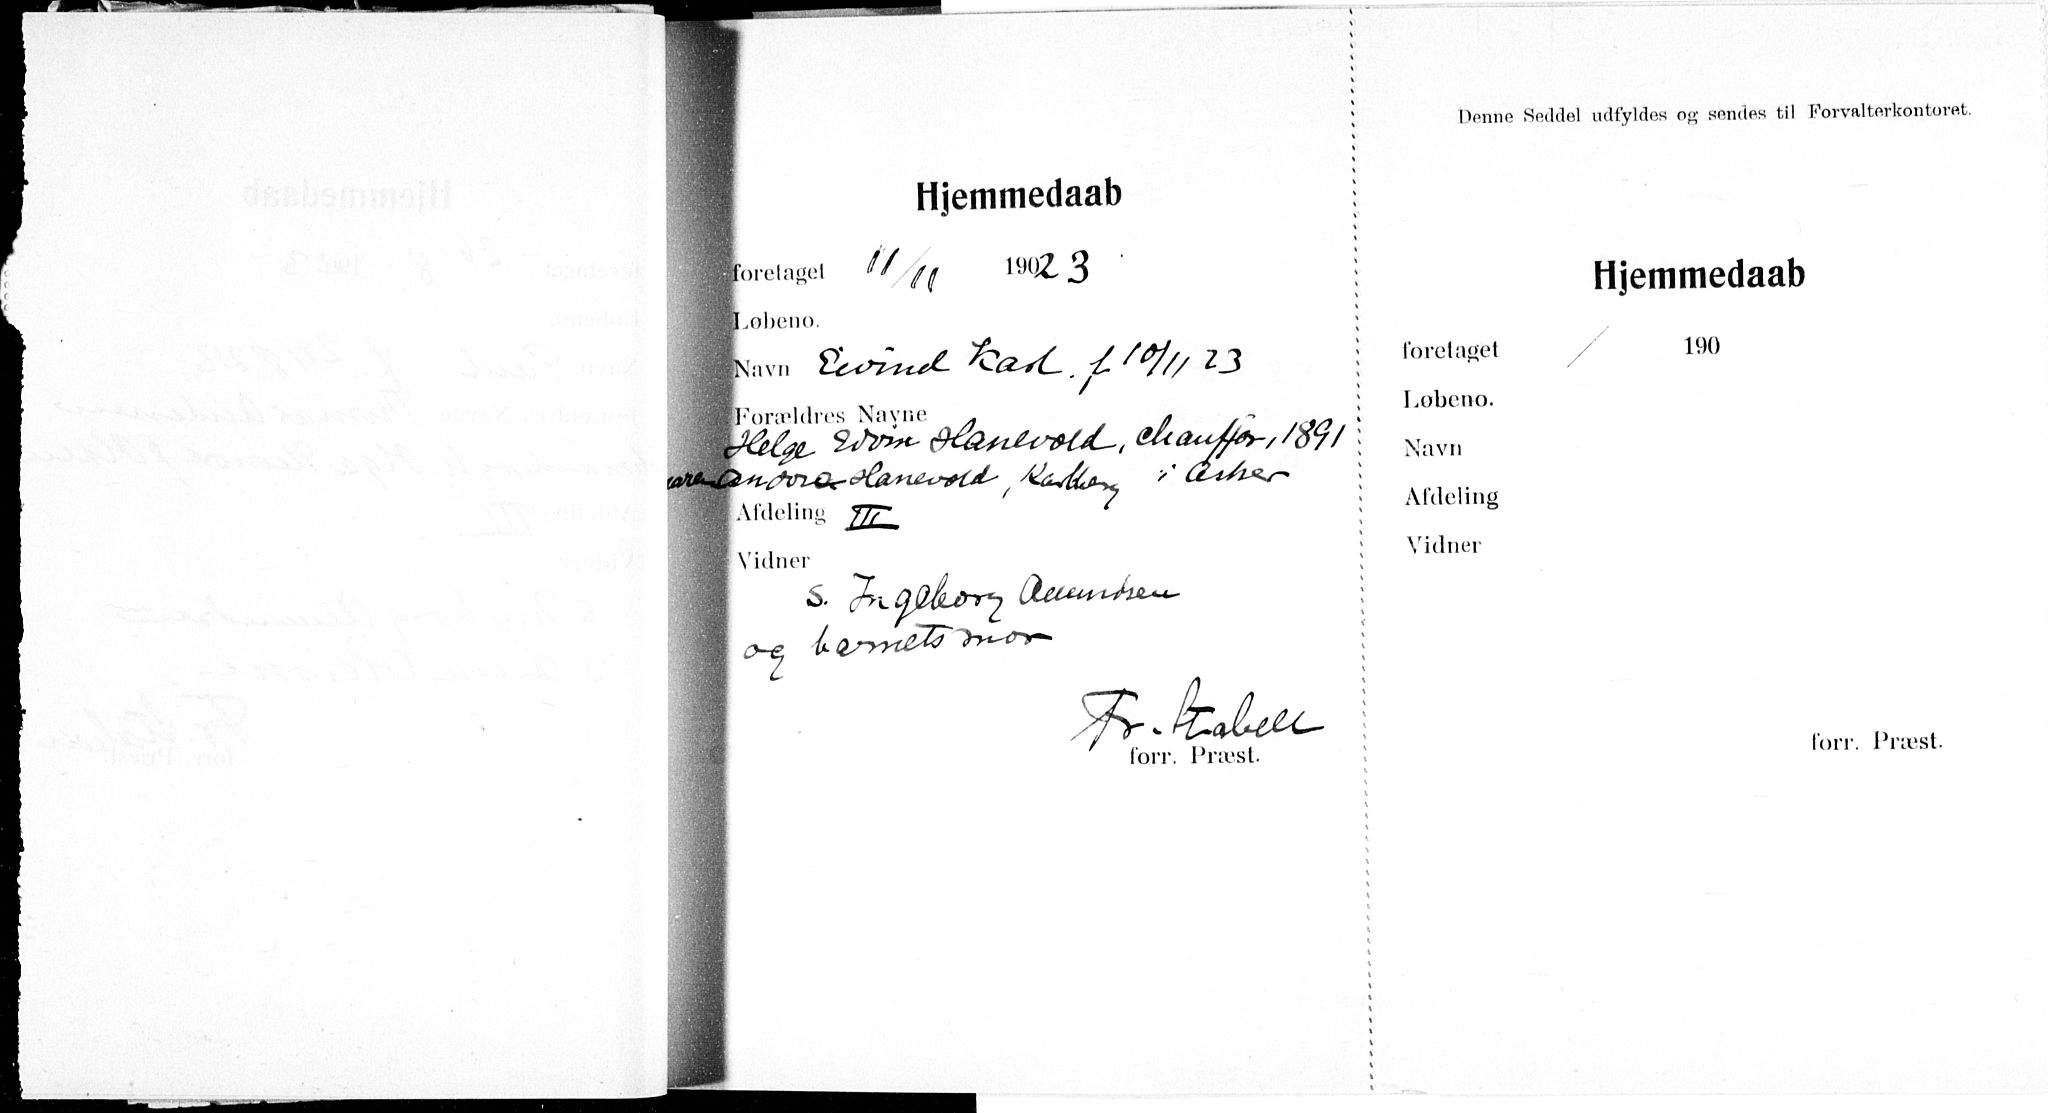 Hjemmedaab
foretaget 11/11 190223
Løbeno.
Navn Eivind Karl. f 10/11 23
Forældres Navne
Helge Edvin Hanevold, chauffør, 1891
Andora Hanevold, Karlberg i Asker
Afdeling III
Vidner
S. Ingeborg Amundsen
og barnets mor
Fr. Stabell
forr. Præst.
Denne Seddel udfyldes og sendes til Forvalterkontoret.
Hjemmedaab
foretaget / 190
Løbeno.
Navn
Afdeling
Vidner
forr. Præst.